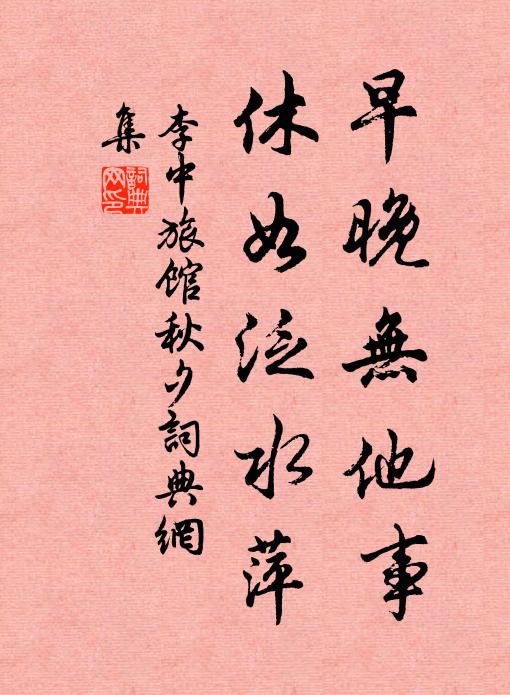 早晚無他事
休如泛水萍
李中旅館秋夕詞典網
集
詞典网印